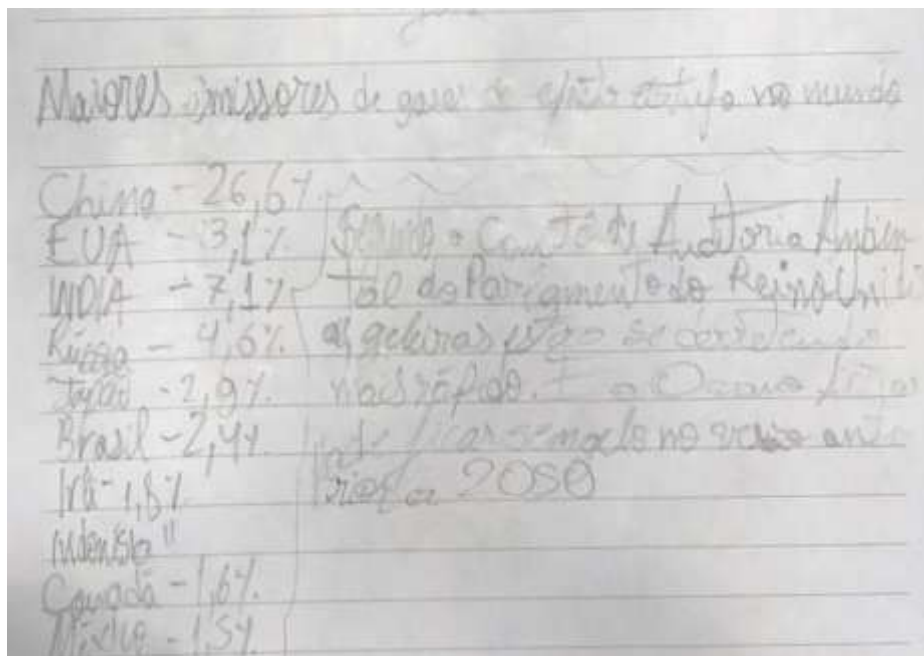 Maiores emissores de gases de efeito estufa no mundo
China - 26,6%
EUA - 3,1%
INDIA - 7,1%
Rússia - 4,6%
Japão - 2,9%
Brasil - 2,4%
Irã - 1,8%
Indonésia "
Canadá - 1,6%
México - 1,5%
Segundo o Comitê de Auditoria Ambien
tal do Parlgmento do Reino Unido
as geleiras estão se derretendo
mais rápido. E o Oceano
pode ficar sem gelo no verão ante
rior a 2050